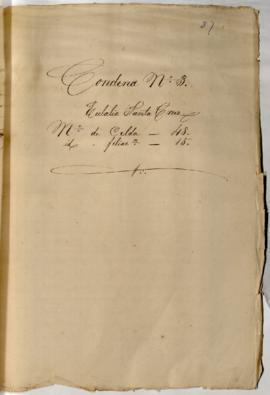 37
Condena Nº 3.
Eulalio Santa Cruz
Mº de Celda — 45.
d. filiacn — 15.